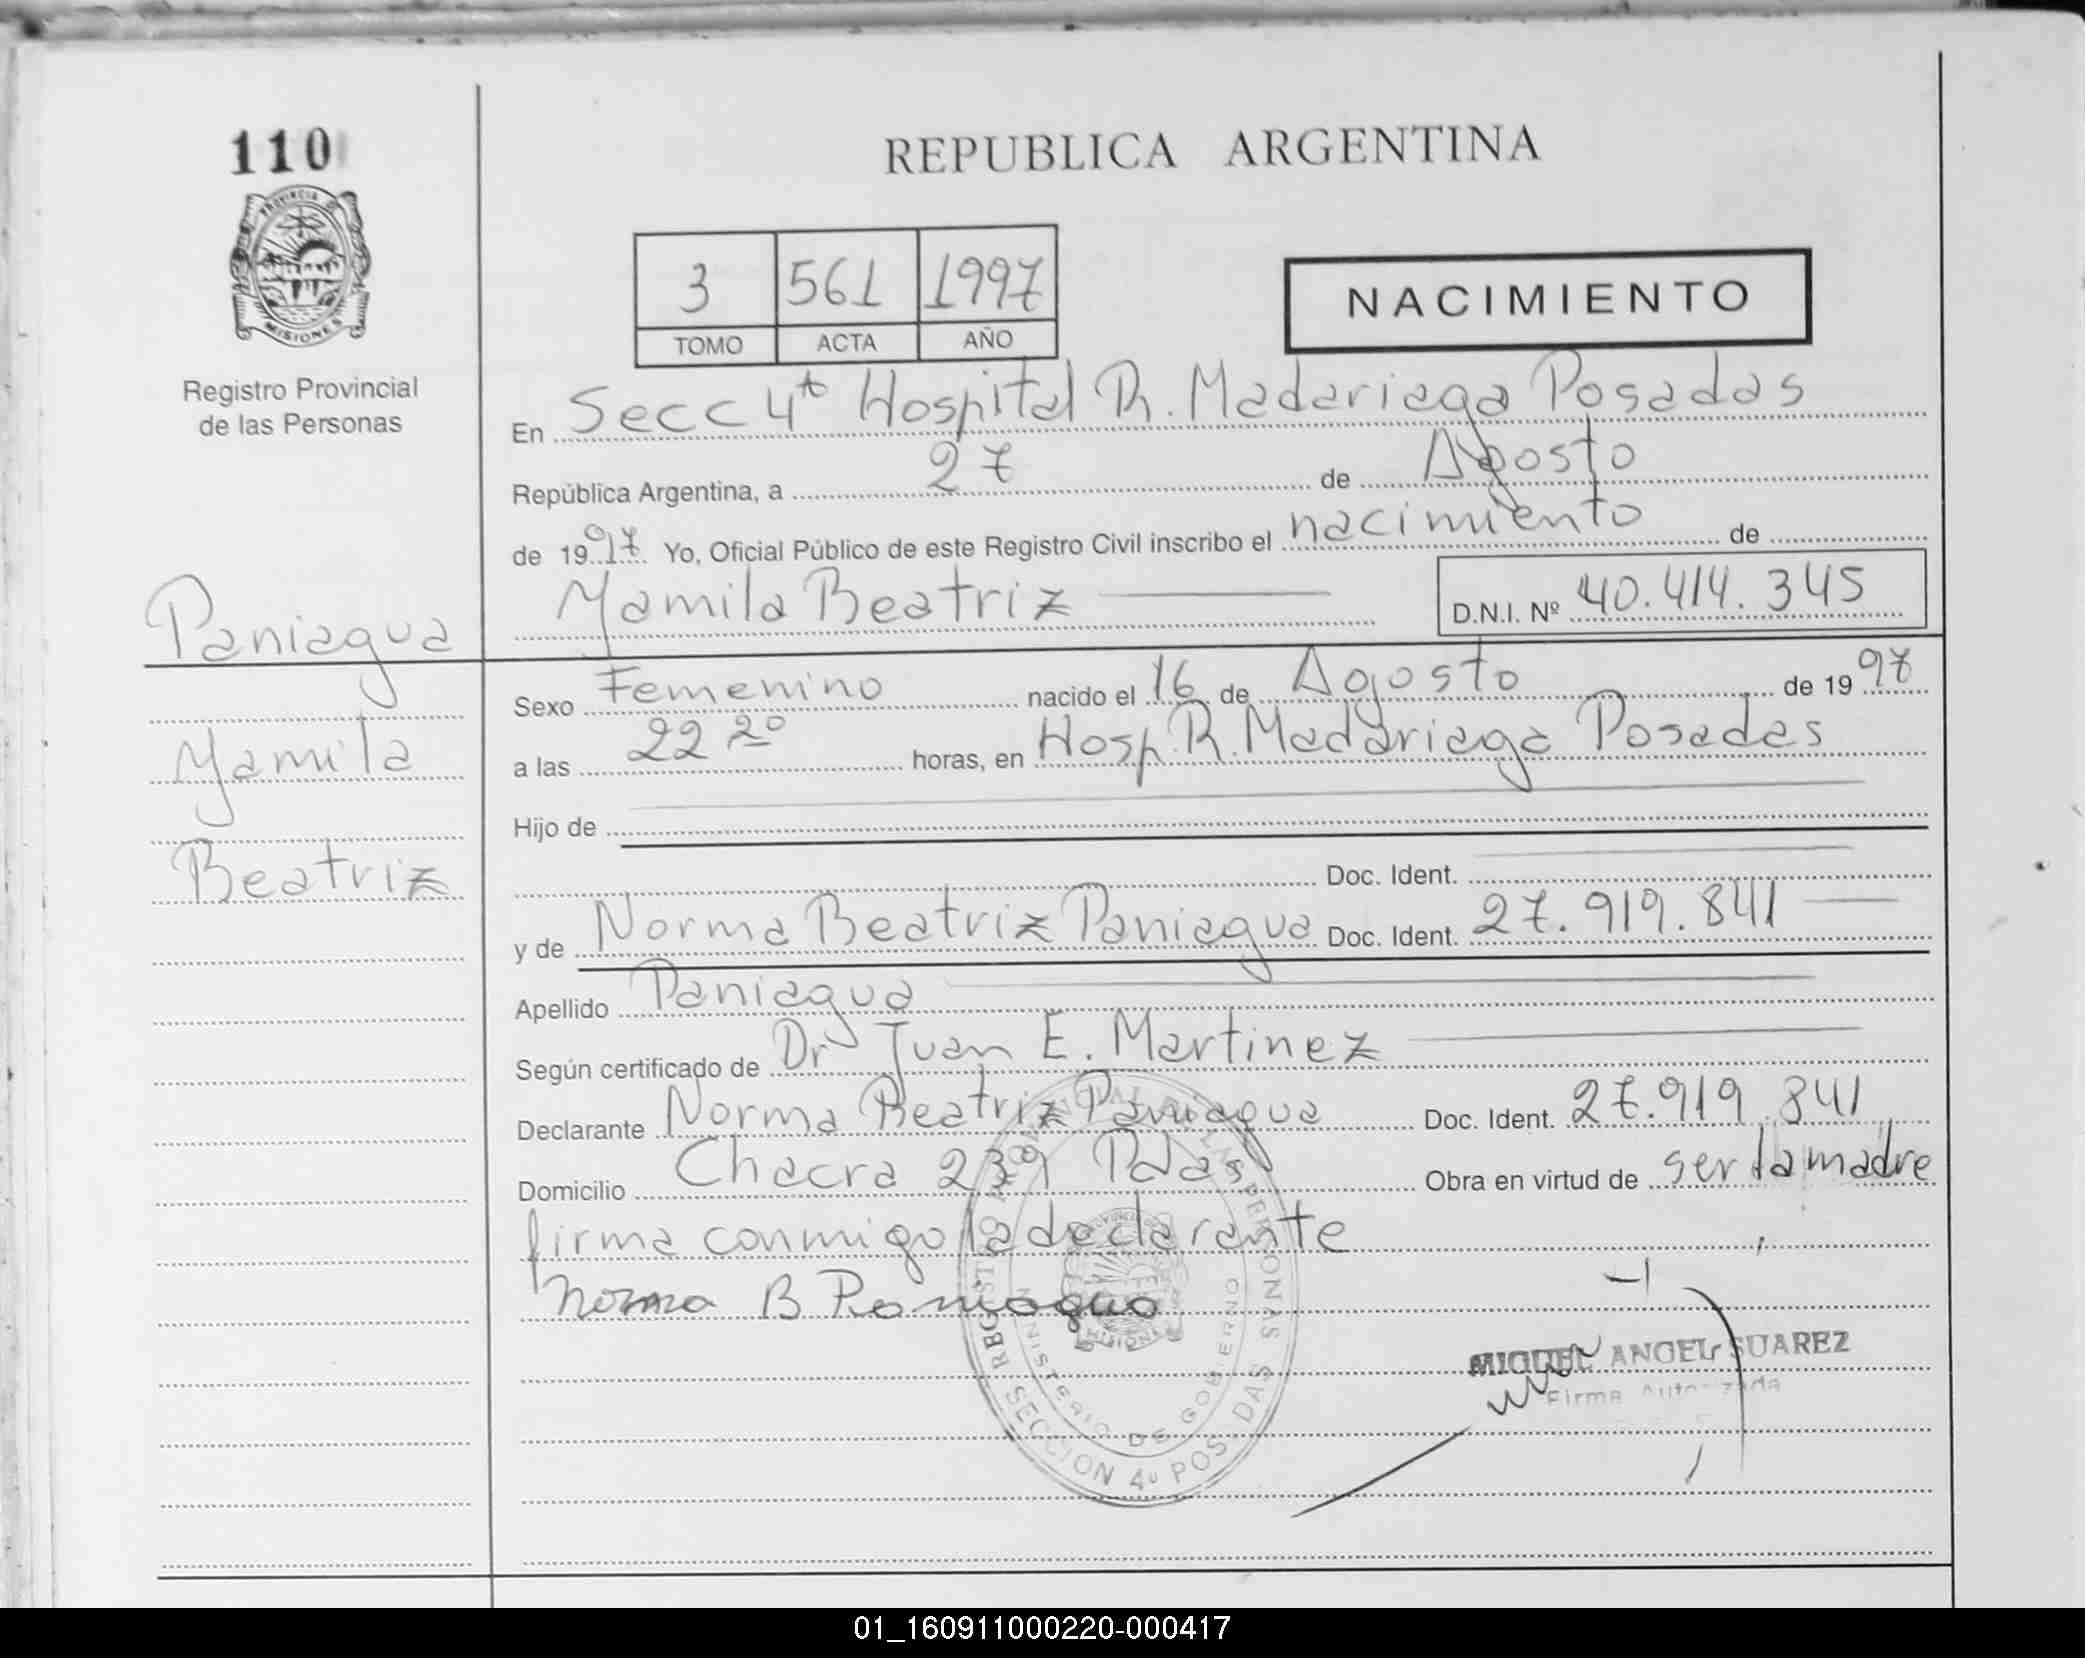 110
REPUBLICA ARGENTINA
PROVINCIA DE
MISIONES
Registro Provincial
de las Personas
3 561 1997
TOMO ACTA AÑO
NACIMIENTO
En Secc 4ta Hospital R. Madariaga Posadas
República Argentina, a 27 de Agosto
de 1997 Yo, Oficial Público de este Registro Civil inscribo el nacimiento de
Yamila Beatriz
D.N.I. Nº 40.414.345
Paniagua
Yamila
Beatriz
Sexo Femenino nacido el 16 de Agosto de 1997
a las 22 20 horas, en Hosp. R. Madariaga Posadas
Hijo de
Doc. Ident.
y de Norma Beatriz Paniagua Doc. Ident. 27.919.841
Apellido Paniagua
Según certificado de Dr Juan E. Martinez
Declarante Norma Beatriz Paniagua Doc. Ident. 27.919.841
Domicilio Chacra 239 Pdas Obra en virtud de ser la madre
firma conmigo la declarante
Norma B Paniagua
REGISTRO PROVINCIAL DE LAS PERSONAS
MINISTERIO DE GOBIERNO
MISIONES
SECCION 4º POSADAS
MIGUEL ANGEL SUAREZ
Firma Autorizada
01_160911000220-000417